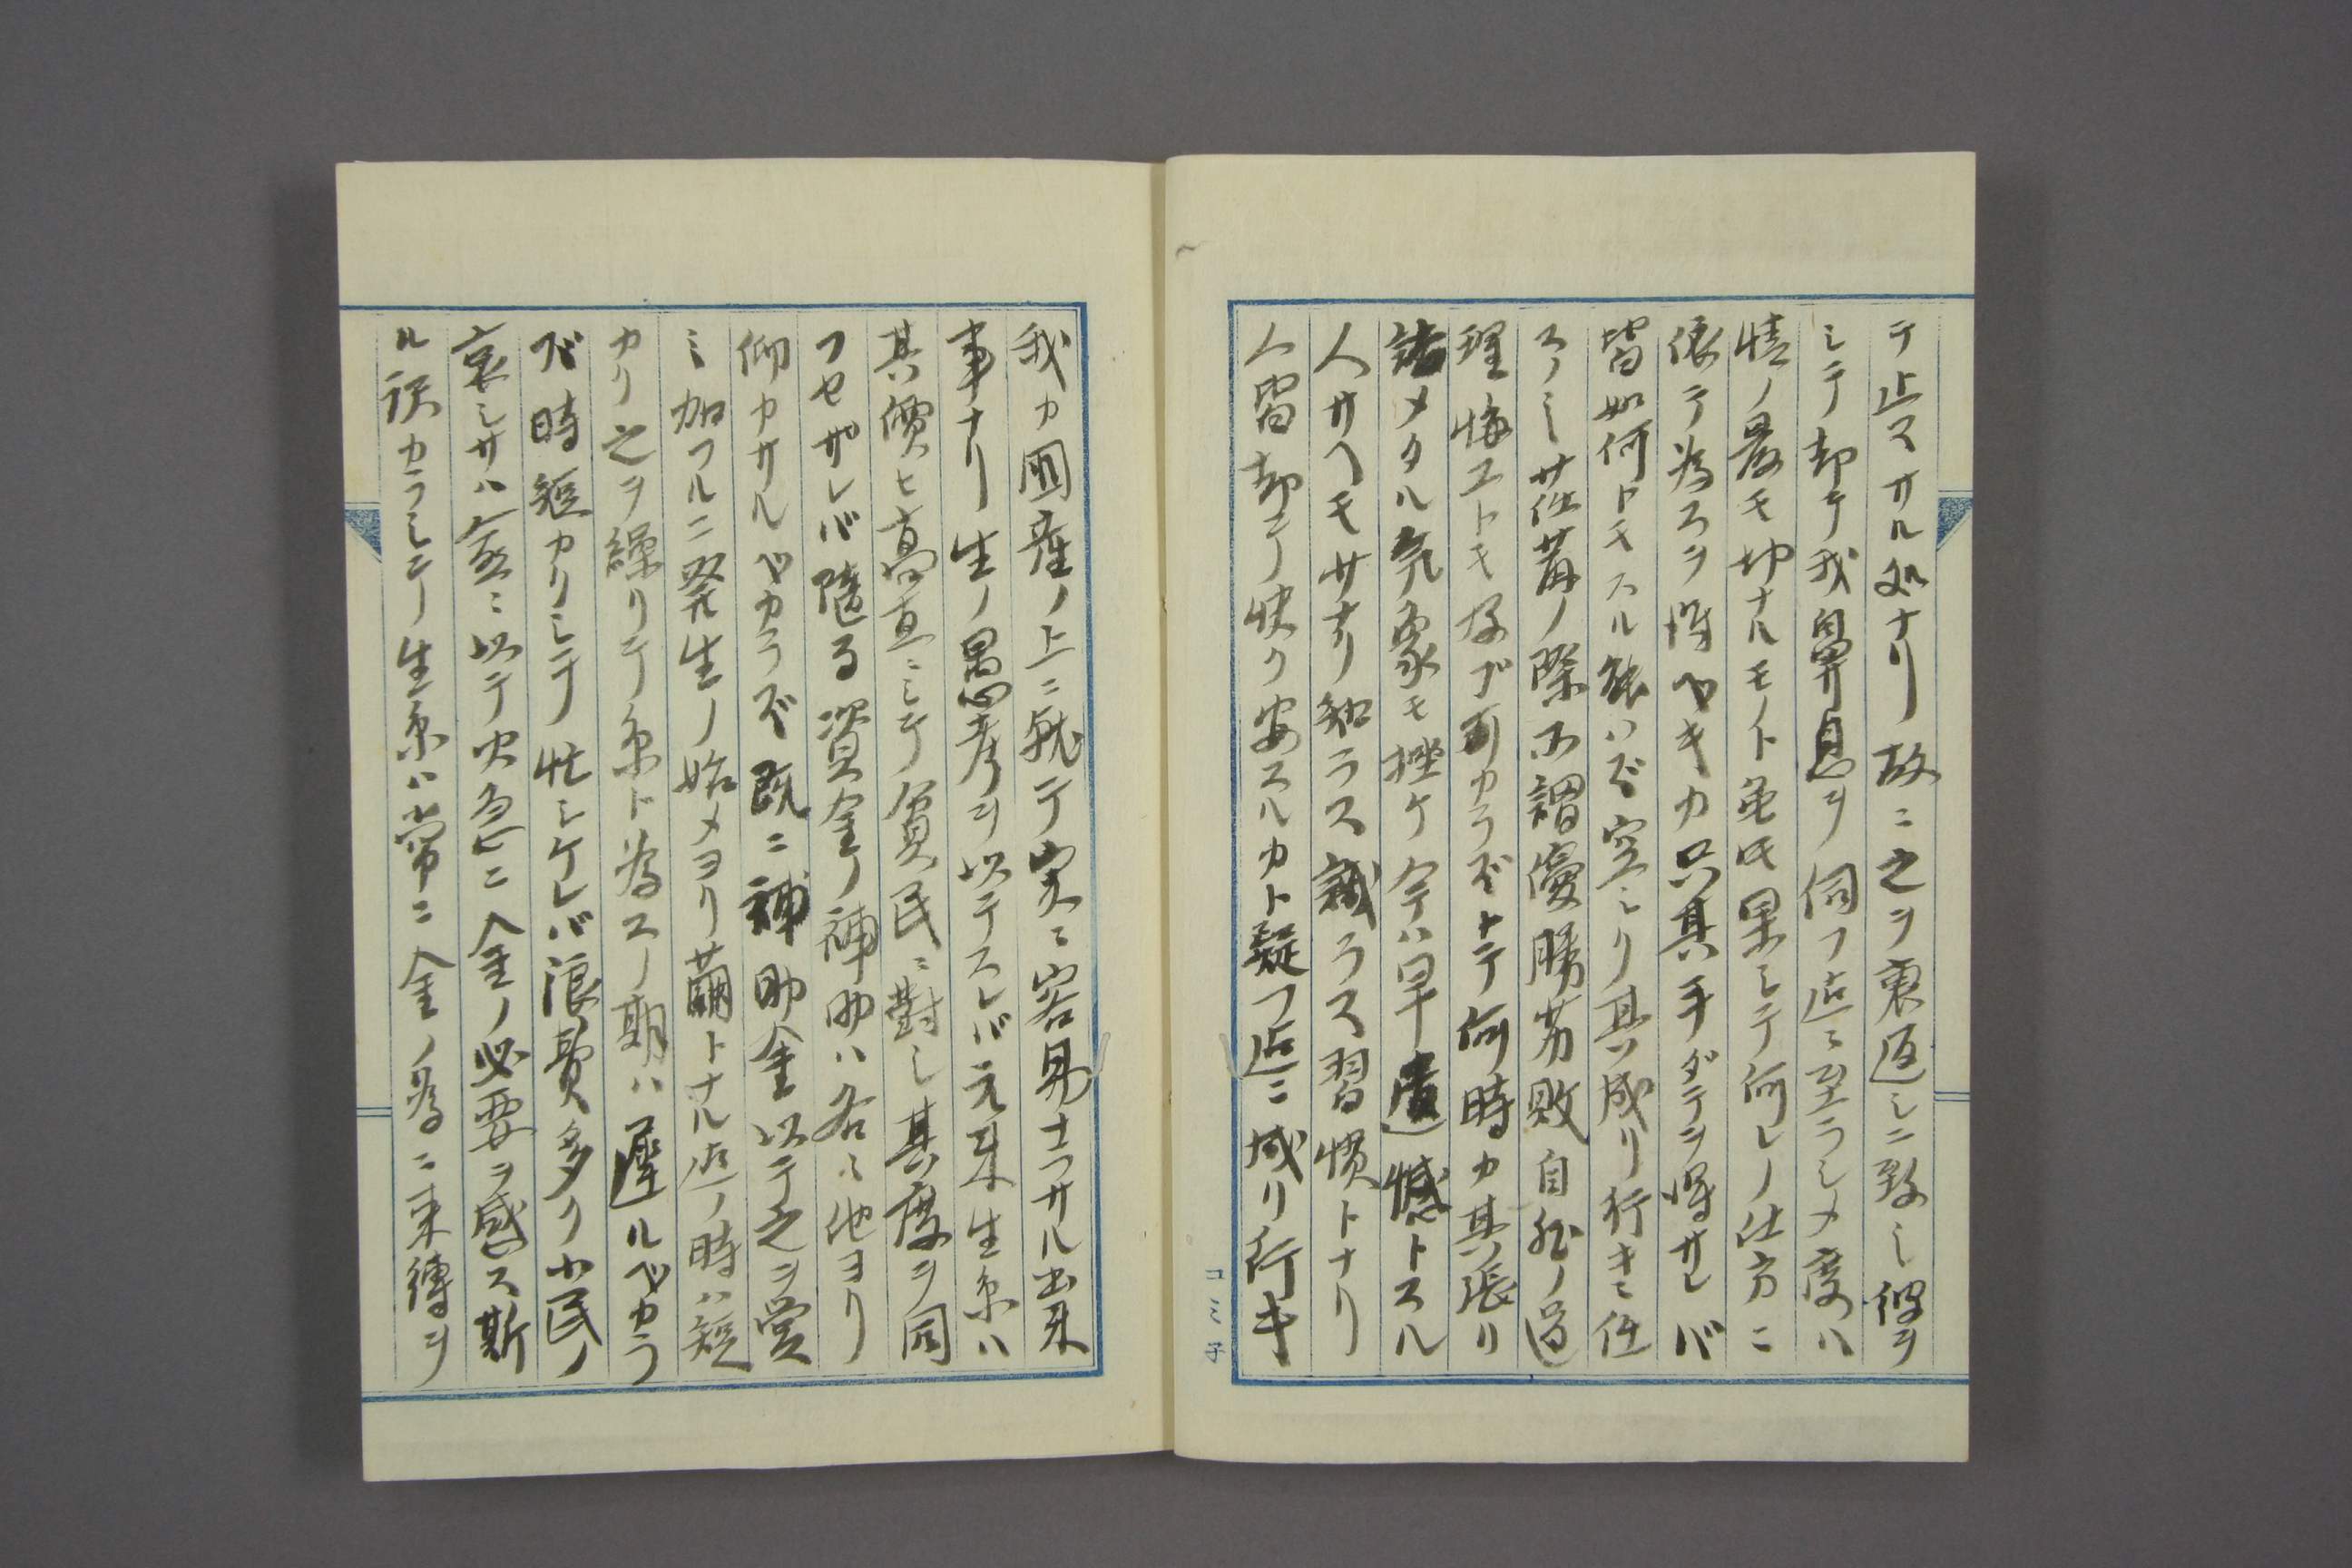 テ止マサル処ナリ故ニ之ヲ裏返シニ致シ彼ヲ
シテ却テ我鼻息ヲ伺フ迠ニ至ラシメ度ハ
情ノ最モ切ナルモノト雖氏果シテ何レノ仕方ニ
依テ為スヲ得ベキカ只其手ダテヲ得サレバ
皆如何トモスル能ハズ空シク其成リ行キニ任
スノミ荏苒ノ際所謂優勝劣敗自然ノ道
理悔ユトモ及ブ可カラズトテ何時カ其張リ
詰メタル気象モ挫ケ今ハ早遺憾トスル
人サヘモサナリ知ラス識ラス習慣トナリ
人皆却テ快ク安スルカト疑フ迠ニ成リ行キ
コミ子
我カ国産ノ上ニ就テ実ニ容易ナラサル出来
事ナリ生ノ愚考ヲ以テスレバ元来生糸ハ
其價ヒ高直ニシテ貧民ニ對シ其度ヲ同
フセザレバ随る資金ノ補助ハ各々他ヨリ
仰カサルベカラズ既ニ補助金以テ之ヲ営
ミ加フルニ発生ノ始メヨリ繭トナル迠ノ時ハ短
カク之ヲ繰リテ糸ト為スノ期ハ遅ルベカラ
ズ時短カクシテ忙シケレバ浪費多ク小民ノ
哀シサハ愈ニ以テ火急ニ金ノ必要ヲ感ス斯
ル訳カラシテ生糸ハ常ニ金ノ為ニ束縛ヲ